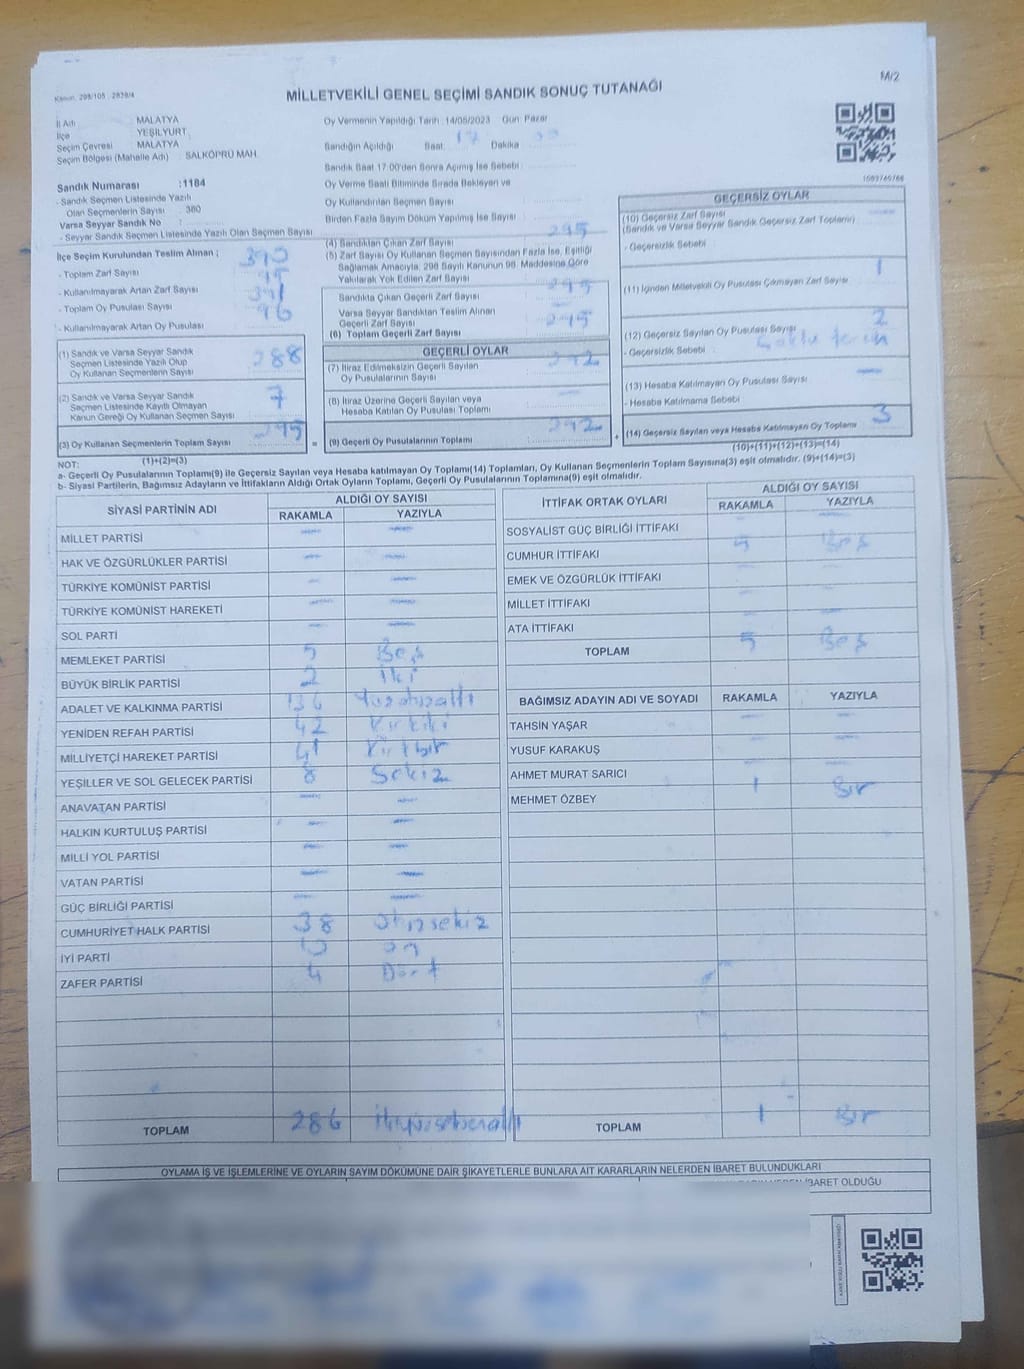 M/2
Kanun: 298/105 - 2839/4
MİLLETVEKİLİ GENEL SEÇİMİ SANDIK SONUÇ TUTANAĞI
İl Adı MALATYA
İlçe YEŞİLYURT
Seçim Çevresi MALATYA
Seçim Bölgesi (Mahalle Adı) SALKÖPRÜ MAH.
Sandık Numarası :1184
- Sandık Seçmen Listesinde Yazılı
Olan Seçmenlerin Sayısı : 380
Varsa Seyyar Sandık No :
- Seyyar Sandık Seçmen Listesinde Yazılı Olan Seçmen Sayısı
Oy Vermenin Yapıldığı Tarih :14/05/2023 Gün: Pazar
Sandığın Açıldığı Saat: 17 Dakika
Sandık Saat 17:00'den Sonra Açılmış İse Sebebi
Oy Verme Saati Bitiminde Sırada Bekleyen ve
Oy Kullandırılan Seçmen Sayısı
Birden Fazla Sayım Döküm Yapılmış İse Sayısı
İlçe Seçim Kurulundan Teslim Alınan :
- Toplam Zarf Sayısı 390
- Kullanılmayarak Artan Zarf Sayısı 95
- Toplam Oy Pusulası Sayısı 391
- Kullanılmayarak Artan Oy Pusulası 96
(1) Sandık ve Varsa Seyyar Sandık
Seçmen Listesinde Yazılı Olup
Oy Kullanan Seçmenlerin Sayısı 288
(2) Sandık ve Varsa Seyyar Sandık
Seçmen Listesinde Kayıtlı Olmayan
Kanun Gereği Oy Kullanan Seçmen Sayısı 7
(3) Oy Kullanan Seçmenlerin Toplam Sayısı 295
(1)+(2)=(3)
(4) Sandıktan Çıkan Zarf Sayısı 295
(5) Zarf Sayısı Oy Kullanan Seçmen Sayısından Fazla İse, Eşitliği
Sağlamak Amacıyla, 298 Sayılı Kanunun 98. Maddesine Göre
Yakılarak Yok Edilen Zarf Sayısı
Sandıkta Çıkan Geçerli Zarf Sayısı 295
Varsa Seyyar Sandıktan Teslim Alınan
Geçerli Zarf Sayısı
(6) Toplam Geçerli Zarf Sayısı 295
GEÇERLİ OYLAR
(7) İtiraz Edilmeksizin Geçerli Sayılan
Oy Pusulalarının Sayısı 292
(8) İtiraz Üzerine Geçerli Sayılan veya
Hesaba Katılan Oy Pusulası Toplamı
= (9) Geçerli Oy Pusulalarının Toplamı 292
1093740766
GEÇERSİZ OYLAR
(10) Geçersiz Zarf Sayısı
(Sandık ve Varsa Seyyar Sandık Geçersiz Zarf Toplamı)
- Geçersizlik Sebebi
(11) İçinden Milletvekili Oy Pusulası Çıkmayan Zarf Sayısı 1
(12) Geçersiz Sayılan Oy Pusulası Sayısı 2
- Geçersizlik Sebebi
(13) Hesaba Katılmayan Oy Pusulası Sayısı
- Hesaba Katılmama Sebebi
+ (14) Geçersiz Sayılan veya Hesaba Katılmayan Oy Toplamı 3
(10)+(11)+(12)+(13)=(14)
NOT:
a- Geçerli Oy Pusulalarının Toplamı(9) ile Geçersiz Sayılan veya Hesaba katılmayan Oy Toplamı(14) Toplamları, Oy Kullanan Seçmenlerin Toplam Sayısına(3) eşit olmalıdır. (9)+(14)=(3)
b- Siyasi Partilerin, Bağımsız Adayların ve İttifakların Aldığı Ortak Oyların Toplamı, Geçerli Oy Pusulalarının Toplamına(9) eşit olmalıdır.
SİYASİ PARTİNİN ADI ALDIĞI OY SAYISI
RAKAMLA YAZIYLA
MİLLET PARTİSİ
HAK VE ÖZGÜRLÜKLER PARTİSİ
TÜRKİYE KOMÜNİST PARTİSİ
TÜRKİYE KOMÜNİST HAREKETİ
SOL PARTİ
MEMLEKET PARTİSİ 5 Beş
BÜYÜK BİRLİK PARTİSİ 2 İki
ADALET VE KALKINMA PARTİSİ 136 Yüzotuzaltı
YENİDEN REFAH PARTİSİ 42 Kırkiki
MİLLİYETÇİ HAREKET PARTİSİ 41 Kırkbir
YEŞİLLER VE SOL GELECEK PARTİSİ 8 Sekiz
ANAVATAN PARTİSİ
HALKIN KURTULUŞ PARTİSİ
MİLLİ YOL PARTİSİ
VATAN PARTİSİ
GÜÇ BİRLİĞİ PARTİSİ
CUMHURİYET HALK PARTİSİ 38 Otuzsekiz
İYİ PARTİ 10 On
ZAFER PARTİSİ 4 Dört
TOPLAM 286 İkiyüzseksenaltı
İTTİFAK ORTAK OYLARI ALDIĞI OY SAYISI
RAKAMLA YAZIYLA
SOSYALİST GÜÇ BİRLİĞİ İTTİFAKI
CUMHUR İTTİFAKI 5 Beş
EMEK VE ÖZGÜRLÜK İTTİFAKI
MİLLET İTTİFAKI
ATA İTTİFAKI
TOPLAM 5 Beş
BAĞIMSIZ ADAYIN ADI VE SOYADI RAKAMLA YAZIYLA
TAHSİN YAŞAR
YUSUF KARAKUŞ
AHMET MURAT SARICI
MEHMET ÖZBEY 1 Bir
TOPLAM 1 Bir
OYLAMA İŞ VE İŞLEMLERİNE VE OYLARIN SAYIM DÖKÜMÜNE DAİR ŞİKAYETLERLE BUNLARA AİT KARARLARIN NELERDEN İBARET BULUNDUKLARI
İBARET OLDUĞU